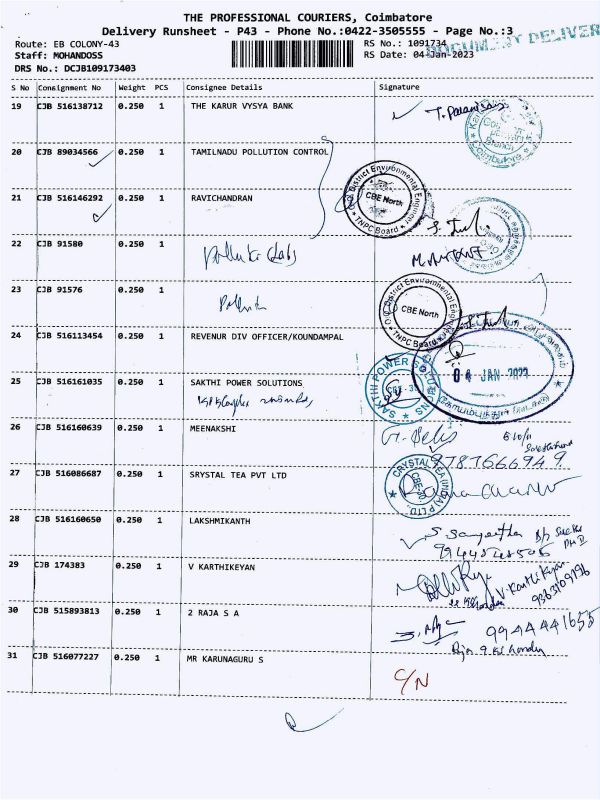 THE PROFESSIONAL COURIERS, Coimbatore
Delivery Runsheet - P43 - Phone No.:0422-3505555 - Page No.:3
Route: EB COLONY-43 RS No.: 1091734
DOCUMENT DELIVER
Staff: MOHANDOSS RS Date: 04-Jan-2023
DRS No.: DCJB109173403
S No Consignment No Weight PCS Consignee Details Signature
19 CJB 516138712 0.250 1 THE KARUR VYSYA BANK
20 CJB 89034566 0.250 1 TAMILNADU POLLUTION CONTROL
District Environmental Engineer
CBE North
TNPC Board
21 CJB 516146292 0.250 1 RAVICHANDRAN
22 CJB 91580 0.250 1
23 CJB 91576 0.250 1
District Environmental Engineer
CBE North
TNPC Board
24 CJB 516113454 0.250 1 REVENUR DIV OFFICER/KOUNDAMPAL
04 JAN 2023
25 CJB 516161035 0.250 1 SAKTHI POWER SOLUTIONS
SAKTHI POWER SOLUTIONS
26 CJB 516160639 0.250 1 MEENAKSHI
9787666949
27 CJB 516086687 0.250 1 SRYSTAL TEA PVT LTD
CRYSTAL TEA (INDIA) P LTD
28 CJB 516160650 0.250 1 LAKSHMIKANTH
S Sangeetha
29 CJB 174383 0.250 1 V KARTHIKEYAN
V. Karthikeyan
9363109196
30 CJB 515893813 0.250 1 2 RAJA S A
9944441655
31 CJB 516077227 0.250 1 MR KARUNAGURU S
C/N